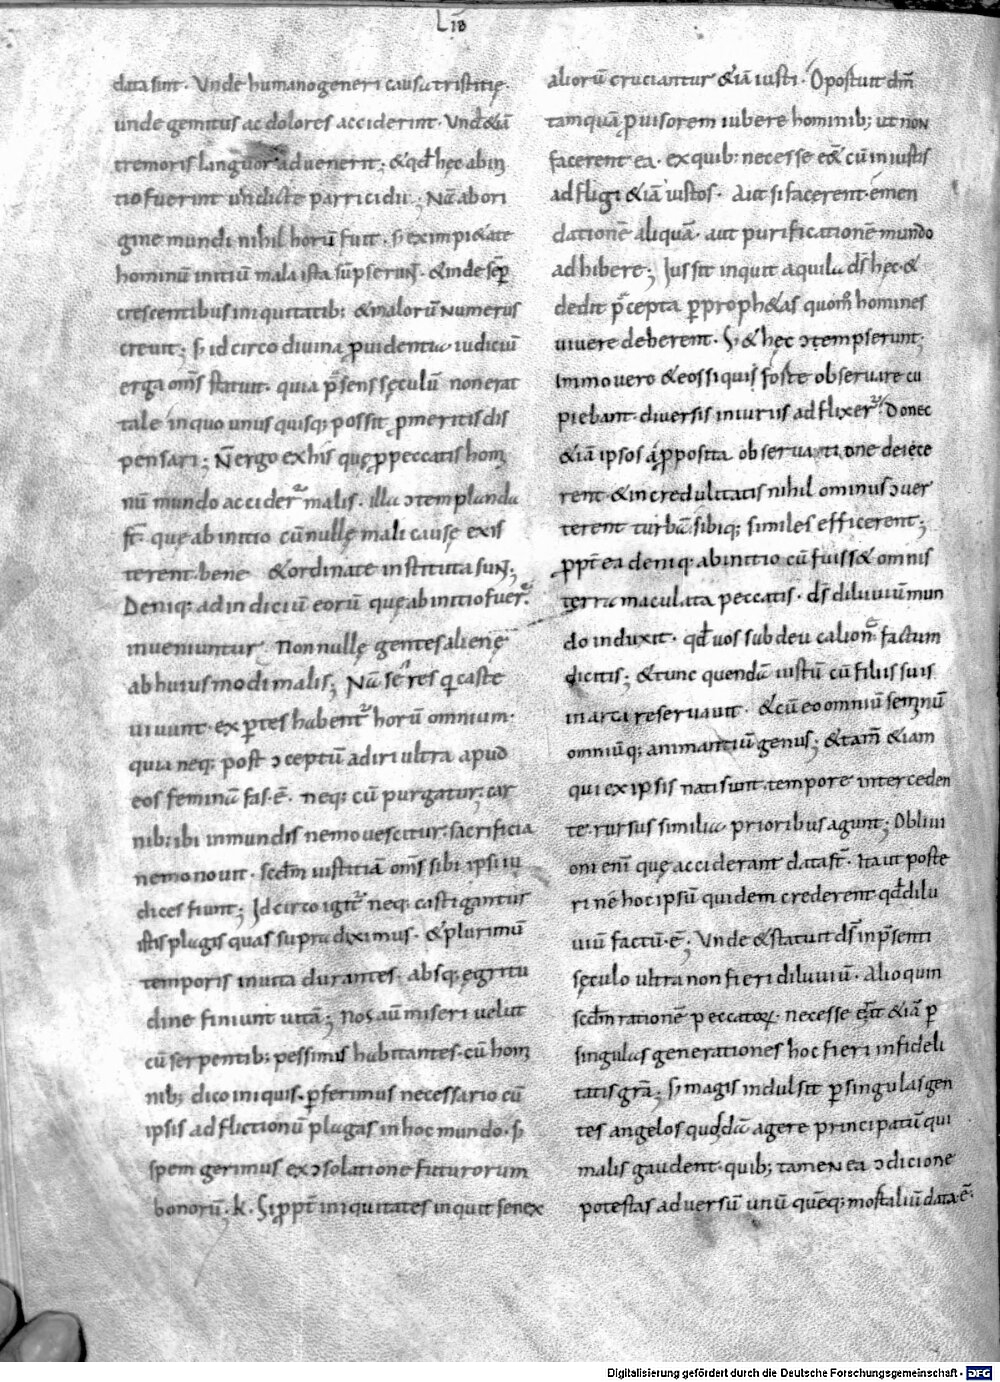 Lib̄
data sunt. Unde humano generi causa tristitię.
unde gemitus ac dolores acciderint. Und&iā
tremoris languor advenerit; &qđ hęc ab ini
tio fuerint vindicte parricidii; Nā ab ori
gine mundi nihil horū fuit. s; ex impi&ate
hominū initiū mala ista sūpserunt. &inde sēp
crescentibus iniquitatib; &malorū numerus
crevit; s; idcirco divina providentia iudiciū
erga om̄s statuit. quia p̄sens sęculū non erat
tale in quo unus quisq; possit p meritis dis
pensari; N̄ ergo ex his quę p peccatis homi
nū mundo accider̄ malis. illa ɔtemplanda
st̄ quę ab initio cū nullę mali causę exis
terent. bene &ordinate instituta sunt;
Deniq; ad indiciū eorū quę ab initio fuer̄.
inveniuntur. Non nullę gentes alienę
ab huiusmodi malis; Nā seres q caste
vivunt. expertes habent̄ horū omnium.
quia neq; post ɔceptū adiri ultra apud
eos feminā fas.ē. neq; cū purgatur. car
nib; ibi inmundis nemo vescitur. sacrificia
nemo novit. scd̄m iustitiā om̄s sibi ipsi iu
dices fiunt; Idcirco igit̄ neq; castigantur
istis plagis quas supra diximus. &plurimū
temporis in vita durantes. absq; egritu
dine finiunt vitā; Nos aū miseri velut
cū serpentib; pessimis habitantes. cū homi
nib; dico iniquis. pferimus necessario cū
ipsis adflictionū plagas in hoc mundo. s;
spem gerimus ex ɔsolatione futurorum
bonorū. k. Si ppt̄ iniquitates inquit senex
aliorū cruciantur &iā iusti. Oportuit dm̄
tamquā pvisorem iubere hominib; ut non
facerent ea. ex quib; necesse eēt cū iniustis
adfligi &iā iustos. aut si facerent. emen
dationē aliquā. aut purificationē mundo
adhibere; Iussit inquit aquila ds̄ hęc. &
dedit p̄cepta p proph&as quom̄ homines
vivere deberent. S; & hęc ɔtempserunt;
Immo vero &eos siquis forte observare cu
piebant. diversis iniuriis adflixer̄. Donec
&iā ipsos á pposita observatione deięce
rent. &incredulitatis nihilominus ɔver
terent turbā. sibiq; similes efficerent;
ppt̄ ea deniq; ab initio cū fuiss& omnis
terra maculata peccatis. ds̄ diluviū mun
do induxit. qđ vos sub deucalione factum
dicitis; &tunc quendā iustū cū filiis suis
in arca reservavit. &cū eo omniū seminū
omniūq; animantiū genus; &tam̄ &iam
qui ex ipsis nati sunt. tempore interceden
te. rursus similia prioribus agunt; Oblivi
oni eni quę acciderant data st̄. Ita ut poste
ri ne hoc ipsū quidem crederent qđ dilu
viū factū.ē; Unde &statuit ds̄ in p̄senti
sęculo ultra non fieri diluviū. alioquin
scd̄m rationē peccatorꝫ. necesse erat &iā p
singulas generationes hoc fieri infideli
tatis gr̄a; s; magis indulsit p singulas gen
tes angelos quosdā agere principatū qui
malis gaudent. quib; tamen ea ɔdicione
potestas adversū unū quēq; mortaliū data.ē.
Digitalisierung gefördert durch die Deutsche Forschungsgemeinschaft - DFG